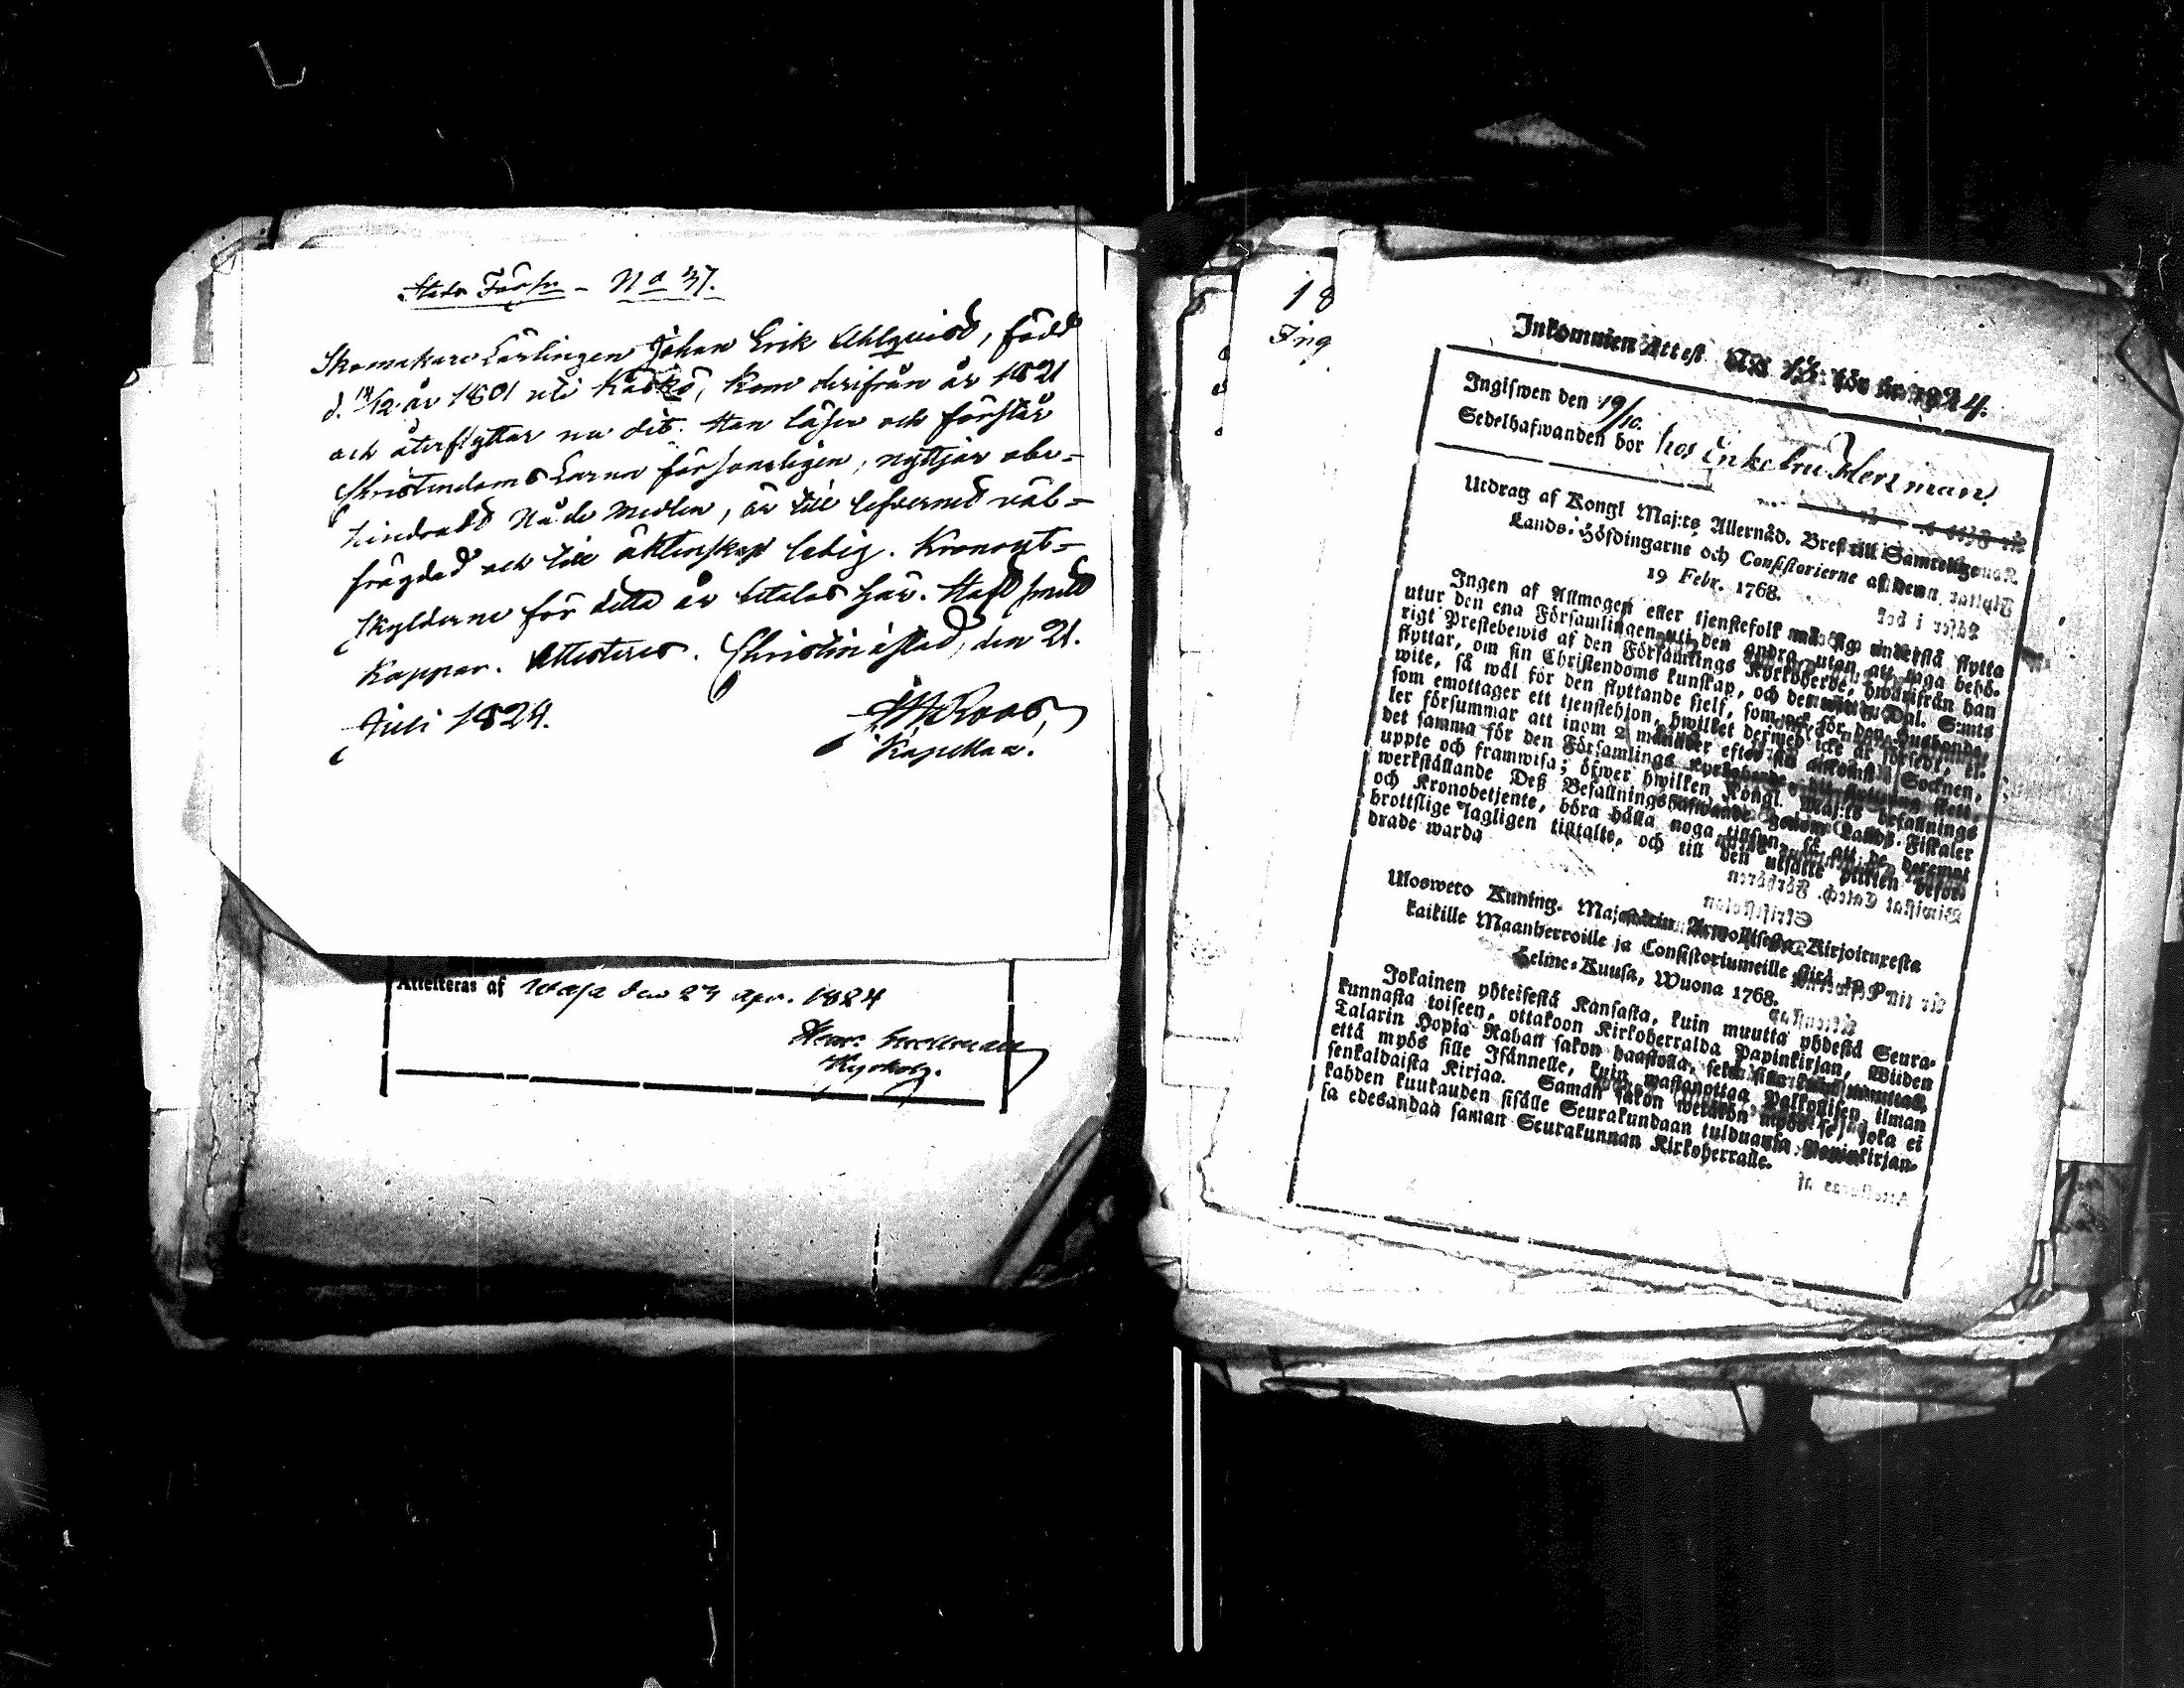 Stads Förs. - No 37.
Skomakare Lärlingen Johan Erik Ahlquist, född
d. /12 år 1801 uti Kaskö, kom derifrån år 1821
och återflyttar nu dit. Han läser och förstår
Christendoms Larna försvarligen, nyttjar obe-
hindradt Nåde Medlen, är till lefvernet väl-
frägdad och till äktenskap ledig. Kronout-
skylderne för detta år betalas här. Haft
Koppor. Attesteres. Christinæstad, den 21.
Juli 1824.
Roos
Kapellan.
Attesteras af Wasa den 23 Apr. 1824
Kyrkohg.
18
Ing
Inkommen Attest No för år 1824.
Ingifwen den 19/10.
Sedelhafwanden bor hos Enkefru Herzman.
Utdrag af Kongl Maj:ts Allernåd. Bref till Samtelige
Lands-Höfdingarne och Consistorierne af den
19 Febr. 1768.
Ingen af Allmogen eller tjenstefolk må sig understå flytta
utur den ena Församlingen uti den andra, utan att taga behö-
rigt Prestebewis af den Församlings Kyrkoherde, hwarifrån han
flyttar, om sin Christendoms kunskap, och det wid 5 Dal. S:mts
wite, så wäl för den flyttande sjelf, som ock för den Husbonde,
som emottager ett tjenstehjon, hwilket dermed icke är försedt, el-
ler försummar att inom 2 månader efter sin ankomst i Socknen,
det samma för den Församlings Kyrkoherde
uppte och framwisa; öfwer hwilken Kongl. Maj:ts befallnings
werkställande Deß Befallningshafwande genom Lands-Fiskaler
och Kronobetjente, böra hålla noga tillsyn, så att de deremot
brottslige lagligen tilltalte, och till den utsatte plikten befor-
drade warda
Ulosweto Kuning. Majestetin Armollisesta Kirjoituxesta
kaikille Maanherroille ja Consistoriumeille siitä
Helme-Kuusa, Wuona 1768.
Jokainen yhteisestä Kansasta, kuin muutta yhdestä Seura-
kunnasta toiseen, ottakoon Kirkoherralda Papinkirjan, Wiiden
Talarin Hopia Rahan sakon haastolla, sekä sille kuin muuttaa,
että myös sille Isännelle, kuin wastanottaa Palkollisen ilman
senkaldaista Kirjaa. Saman sakon wetäkön myös se, joka ei
kahden kuukauden sisälle Seurakundaan tulduansa Papinkirjan-
sa edesandaa saman Seurakunnan Kirkoherralle.